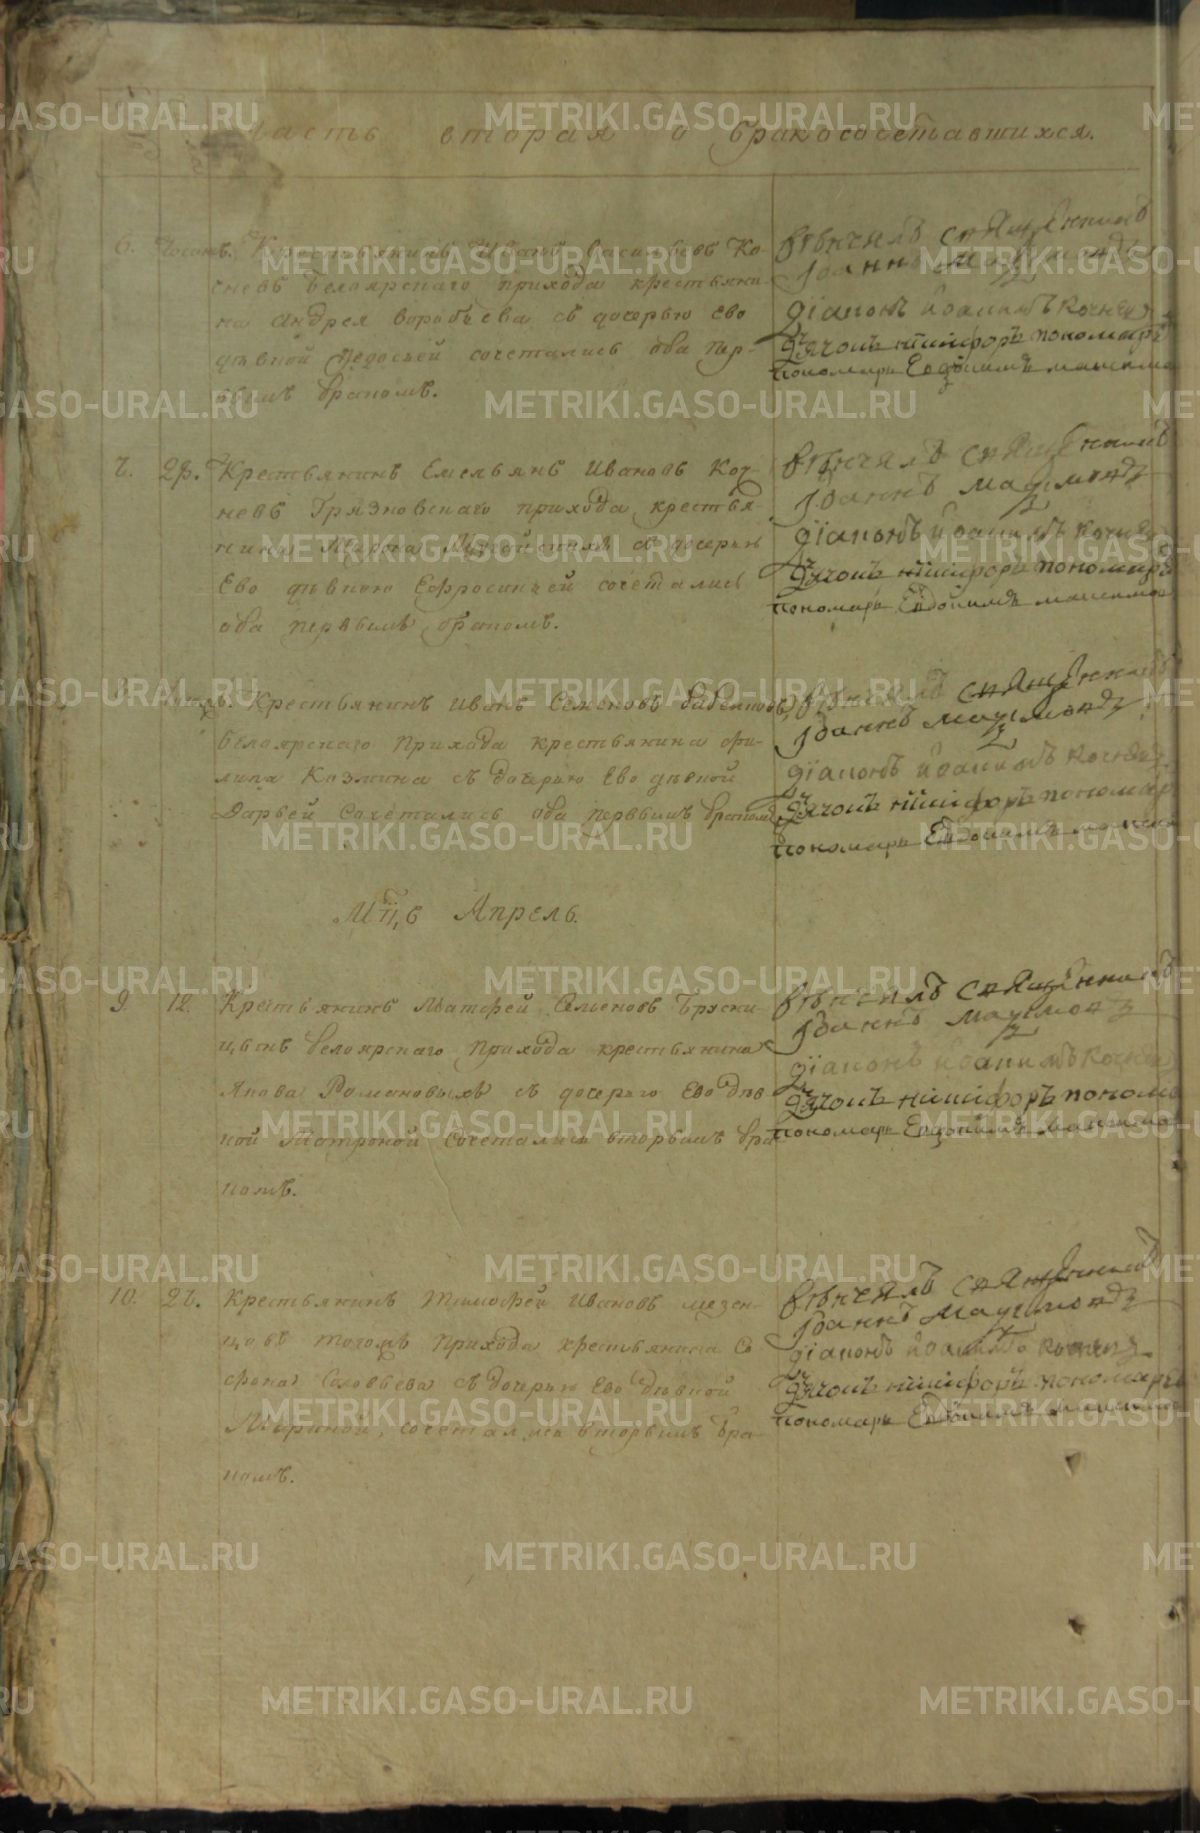 Часть вторая о бракосочетавшихся.
6. Крестьянинъ Иванъ Васильевъ Ко-
чневъ белоярскаго прихода крестьяни-
на Андрея Воробьева съ дочерью ево
девкой Федосьей сочетались оба пер-
вымъ бракомъ.
Венчалъ священникъ
Иоаннъ
дiаконъ Иоакимъ Кочнев
Дьячокъ Никифоръ Пономаре
пономарь Евдокимъ Максимо
7. Крестьянинъ Емельянъ Ивановъ Коч-
невъ Грязновскаго прихода крестья-
нина Мирона съ дочерью
Ево девкою Ефросиньей сочетались
оба первымъ бракомъ.
Венчалъ священникъ
Иоаннъ
дiаконъ Иоакимъ Кочнев
Дьячокъ Никифоръ Пономаре
пономарь Евдокимъ Максимо
8. Крестьянинъ Иванъ Семеновъ
белоярскаго прихода крестьянина Фи-
липа Козмина съ дочерью Ево девкой
Дарьей сочетались оба первымъ браком
Венчалъ священникъ
Иоаннъ
дiаконъ Иоакимъ Кочнев
Дьячокъ Никифоръ Пономар
пономарь Евдокимъ Максимо
Мцъ Апрель.
9. 12. Крестьянинъ Матфей Семеновъ Брусни-
цынъ белоярскаго прихода крестьянина
Якова Романовыхъ съ дочерью Ево дев
кой Матроной сочетались вторымъ бра
комъ.
Венчалъ священникъ
Иоаннъ
дiаконъ Иоакимъ Кочнев
Дьячокъ Никифоръ Пономо
пономарь Евдокимъ Максимо
10. 27. Крестьянинъ Тимофей Ивановъ мезен-
цовъ тогожъ прихода крестьянина Со
фона Соловьева съ дочерью Ево девкой
Мариной, сочетались вторымъ бра-
комъ.
Венчалъ священникъ
Иоаннъ
дiаконъ Иоакимъ Кочнев
Дьячокъ Никифоръ Пономаре
пономарь Евдокимъ Максимо
METRIKI.GASO-URAL.RU